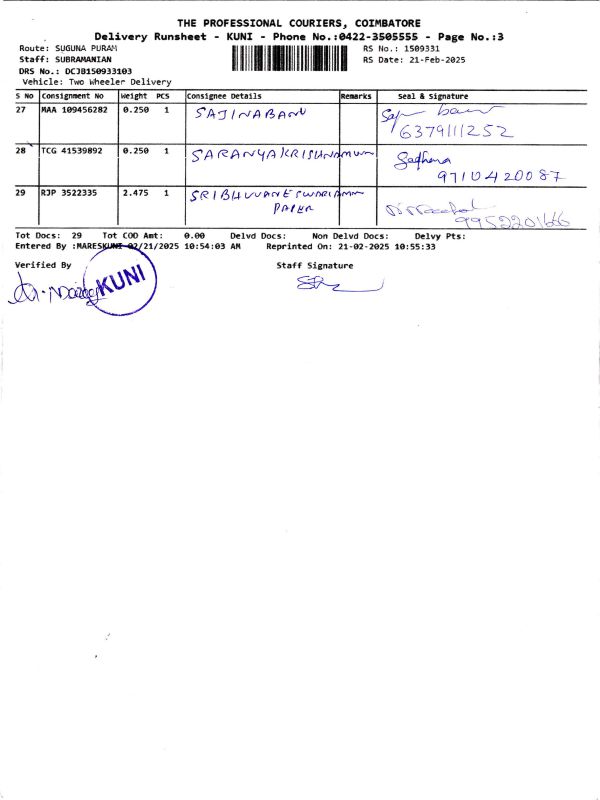 THE PROFESSIONAL COURIERS, COIMBATORE
Delivery Runsheet - KUNI - Phone No.:0422-3505555 - Page No.:3
Route: SUGUNA PURAM RS No.: 1509331
Staff: SUBRAMANIAN RS Date: 21-Feb-2025
DRS No.: DCJB150933103
Vehicle: Two Wheeler Delivery
S No Consignment No Weight PCS Consignee Details Remarks Seal & Signature
27 MAA 109456282 0.250 1 SAJINABANU
6379111252
28 TCG 41539892 0.250 1 SARANYAKRISHNAMUM Sadhana
9710420087
29 RJP 3522335 2.475 1 SRIBHUVANESWARIAMM
PAPER
9952201666
Tot Docs: 29 Tot COD Amt: 0.00 Delvd Docs: Non Delvd Docs: Delvy Pts:
Entered By :MARESKUNI 02/21/2025 10:54:03 AM Reprinted On: 21-02-2025 10:55:33
Verified By Staff Signature
KUNI